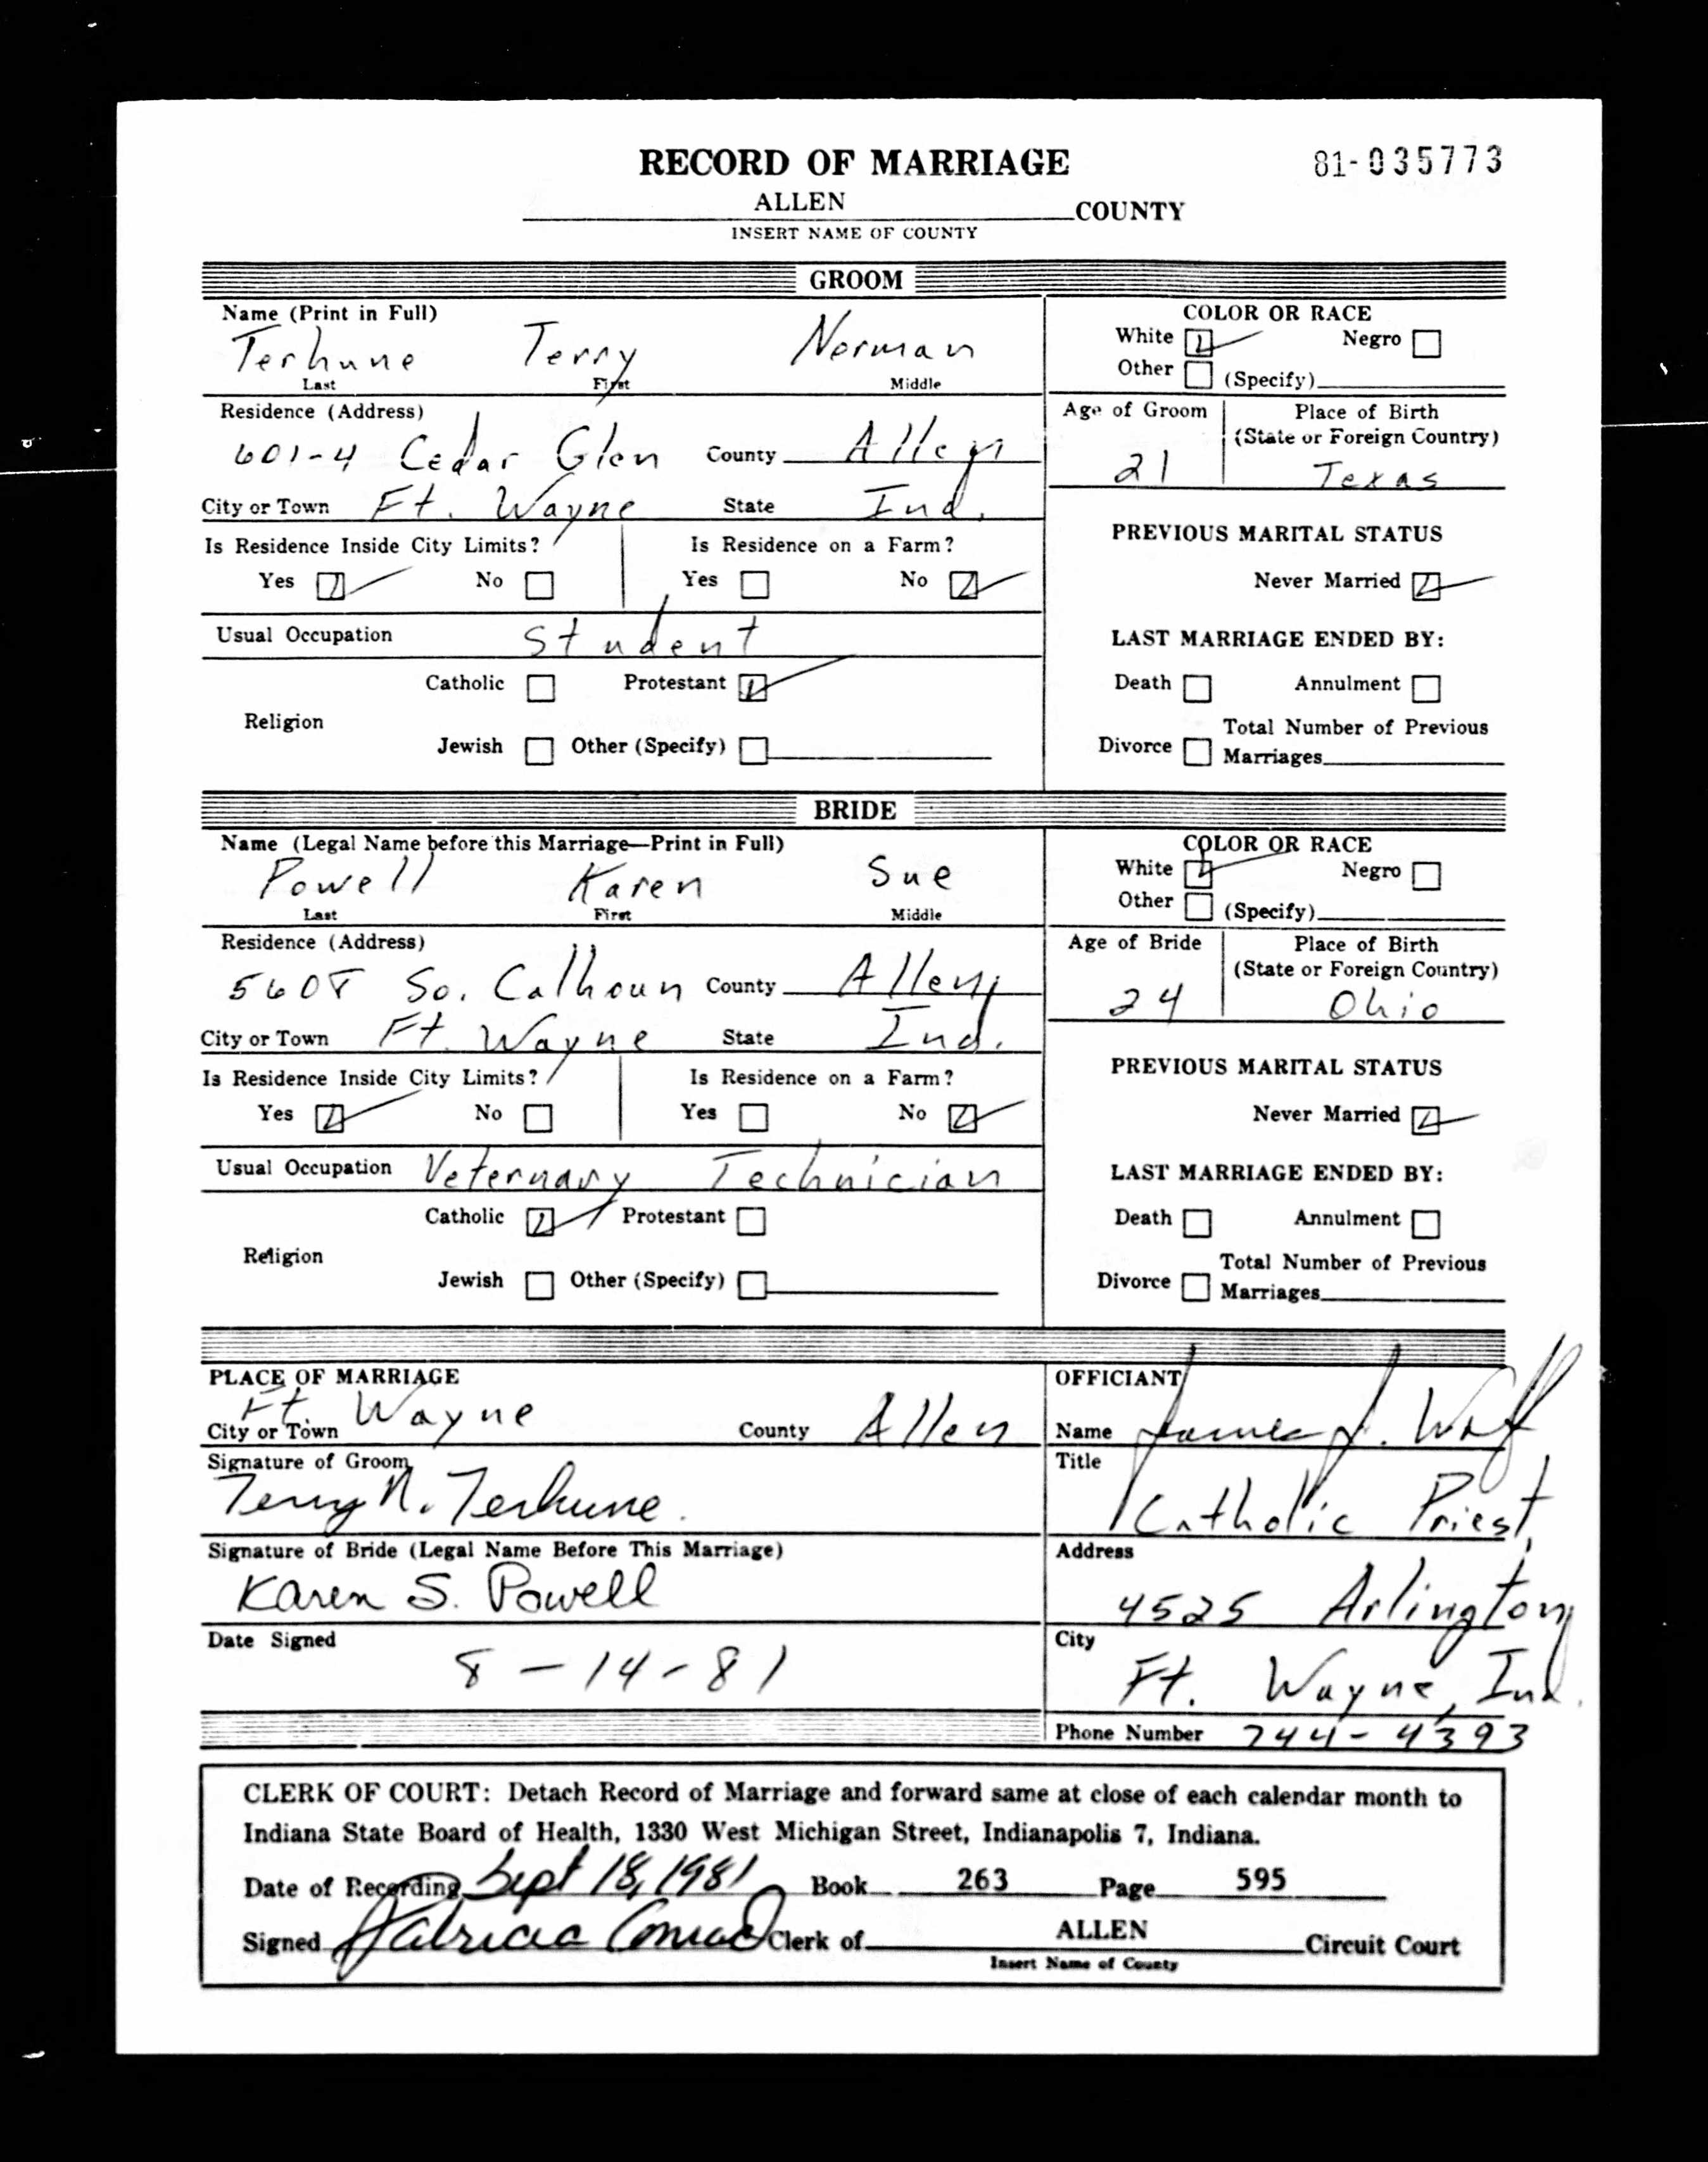 RECORD OF MARRIAGE
81-035773
ALLEN COUNTY
INSERT NAME OF COUNTY
GROOM
Name (Print in Full)
Terhune Terry Norman
Last First Middle
COLOR OR RACE
White Negro
Other (Specify)
Residence (Address)
601-4 Cedar Glen County Allen
City or Town Ft. Wayne State Ind.
Age of Groom
21
Place of Birth
(State or Foreign Country)
Texas
Is Residence Inside City Limits? Is Residence on a Farm?
Yes No Yes No
PREVIOUS MARITAL STATUS
Never Married
Usual Occupation Student
LAST MARRIAGE ENDED BY:
Catholic Protestant
Religion
Jewish Other (Specify)
Death Annulment
Total Number of Previous
Divorce Marriages
BRIDE
Name (Legal Name before this Marriage—Print in Full)
Powell Karen Sue
Last First Middle
COLOR OR RACE
White Negro
Other (Specify)
Residence (Address)
5608 So. Calhoun County Allen
City or Town Ft. Wayne State Ind.
Age of Bride
24
Place of Birth
(State or Foreign Country)
Ohio
Is Residence Inside City Limits? Is Residence on a Farm?
Yes No Yes No
PREVIOUS MARITAL STATUS
Never Married
Usual Occupation Veternary Technician
LAST MARRIAGE ENDED BY:
Catholic Protestant
Religion
Jewish Other (Specify)
Death Annulment
Total Number of Previous
Divorce Marriages
PLACE OF MARRIAGE
Ft. Wayne
City or Town County Allen
Signature of Groom
Terry N. Terhune.
Signature of Bride (Legal Name Before This Marriage)
Karen S. Powell
Date Signed
8-14-81
OFFICIANT
Name James J.
Title
Catholic Priest
Address
4525 Arlington
City
Ft. Wayne, Ind.
Phone Number 744-4393
CLERK OF COURT: Detach Record of Marriage and forward same at close of each calendar month to
Indiana State Board of Health, 1330 West Michigan Street, Indianapolis 7, Indiana.
Date of Recording Sept 18, 1981 Book 263 Page 595
Signed Patricia Conrad Clerk of ALLEN Circuit Court
Insert Name of County